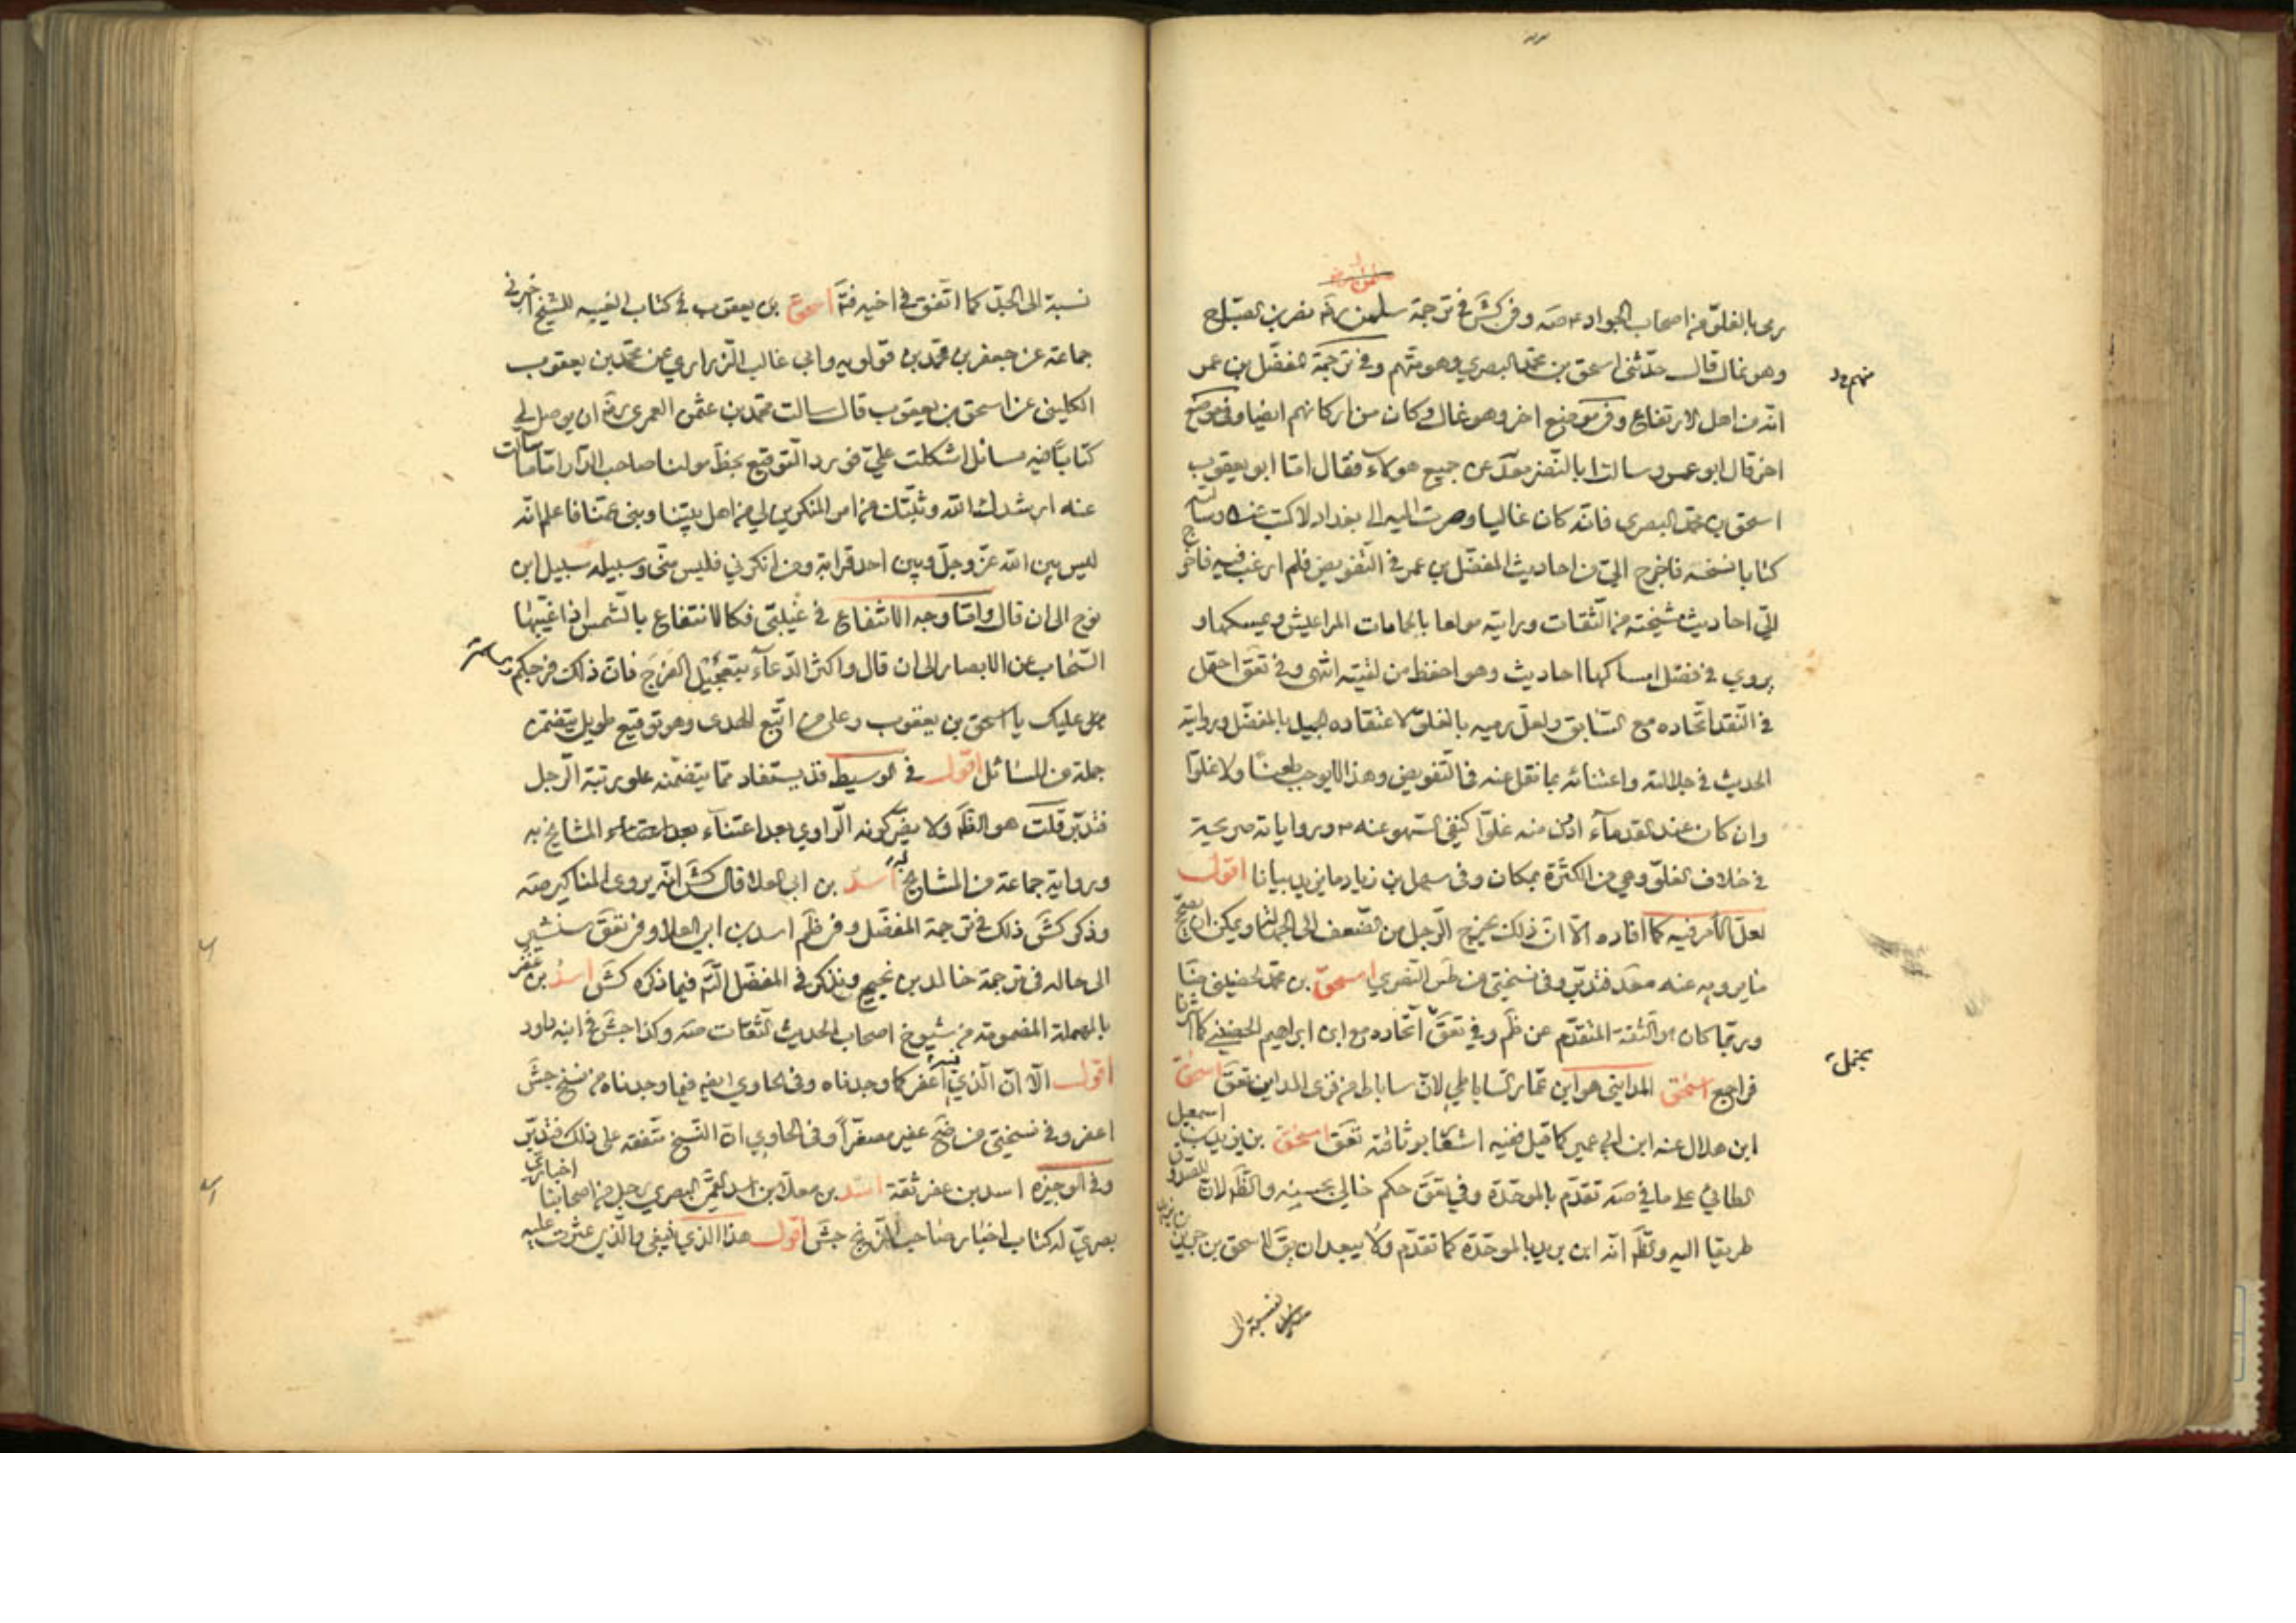 يرمى بالغلو من اصحاب الجواد ع صه وفي كش في ترجمة سلمن رضه نصر بن الصباح
وهو غال قال حدثنى اسحق بن محمد البصري وهو متهم وفي ترجمة المفضل بن عمر
منهم
انه من اهل الارتفاع وفي موضع اخر وهو غال وكان من اركانهم ايضا وفي موضع
اخر قال ابو عمرو سالت ابا النضر عن جميع هولاء فقال اما ابو يعقوب
اسحق بن محمد البصري فانه كان غاليا وصرت اليه الى بغداد لاكتب عنه وسالته
كتابا انسخه فاخرج الي من احاديث المفضل بن عمر في التفويض فلم ارغب فيه فاخرج
الي احاديث مشيخته من الثقات ورايته مولعا بالحامات المراعيش ويمسكها و
يروي في فضل امساكها احاديث وهو احفظ من لقيته انتهى وفي تعق احتمل
في النقد اتحاده مع السابق ولعل رميه بالغلو لاعتقاده الجميل بالمفضل وروايته
الحديث في جلالته واعتنائه بما نقل عنه في التفويض وهذا لا يوجب طعنا ولا غلوا
وان كان عند القدماء ادون منه غلوا كنفي السهو عنه ورواياته صريحة
في خلاف الغلو وهي من الكثرة بمكان وفي سهل بن زياد ما يزيد بيانا اقول
لعل الامر فيه كما افاده الا ان ذلك يخرج الرجل من الضعف الى الجهالة ويمكن ان
ما يرويه عنه فتدبر وفي نسختي من طس النصري اسحق بن محمد الحضيني ضا
وربما كان هو الثقة المتقدم عن ظم وفي تعق اتحاده مع ابن ابراهيم الحضيني كما اشرنا
فراجع اسحق المدايني هو ابن عمار الساباطي لان ساباط من قرى المداين تعق اسحق
ابن هلال عنه ابن ابي عمير كما قيل ففيه اشعار بوثاقته تعق اسحق بن يزيد بن اسمعيل
الطائي على ما في صه تقدم بالموحدة وفي تعق حكم خالي بحسنه والظ لان للصدوق
طريقا اليه والظ انه ابن بريد بالموحدة كما تقدم ولا يبعد ان يق لاسحق بن جرير بن يزيد
نسبة الى
نسبة الى الجد كما اتفق في اخيه فتأ اسحق بن يعقوب في كتاب الغيبه للشيخ اخبرني
جماعة عن جعفر بن محمد بن قولويه وابي غالب الزراري عن محمد بن يعقوب
الكليني عن اسحق بن يعقوب قال سالت محمد بن عثمن العمري ره ان يوصل لي
كتابا فيه مسائل اشكلت علي فورد التوقيع بخط مولنا صاحب الدار اما ما سالت
عنه ارشدك الله وثبتك من امر المنكرين لي من اهل بيتنا وبني عمنا فاعلم انه
ليس بين الله عز وجل وبين احد قرابة ومن انكرني فليس مني وسبيله سبيل ابن
نوح الى ان قال واما وجه الانتفاع في غيبتي فكالانتفاع بالشمس اذا غيبها
السحاب عن الابصار الى ان قال واكثروا الدعاء بتعجيل الفرج فان ذلك فرجكم والسلم
عليك يا اسحق بن يعقوب وعلى من اتبع الهدى وهو توقيع طويل يتضمن
جملة من المسائل اقول في الوسيط قد يستفاد مما يتضمنه علو رتبة الرجل
فتدبر قلت هو الظ ولا يضر كونه الراوي بعد اعتناء المشايخ به
ورواية جماعة من المشايخ له اسد بن ابي العلا قال كش انه يروي المناكير صه
وذكر كش ذلك في ترجمة المفضل وفي ظم اسد بن ابي العلا وفي تعق سنشير
الى حاله في ترجمة خالد بن نجيح ونذكر في المفضل التأمل فيما ذكره كش اسد بن عفر
بالمهملة المضمومة من شيوخ اصحاب الحديث الثقات صه وكذا جش في ابنه داود
اقول الا ان الذي فيه اعفر كما وجدناه وفي الحاوي ايضا فيما وجدناه من نسخ جش
اعفر وفي نسختي من ضح عفير مصغرا وفي الحاوي ان النسخ متفقة على ذلك فتدبر
وفي الوجيزه اسد بن عفر ثقة اسد بن معلا بن اسد العمي البصري رجل من اصحابنا اخباري
بصري له كتاب اخبار صاحب الزنج جش اقول هذا الذي نيفى والذي عثرت عليه